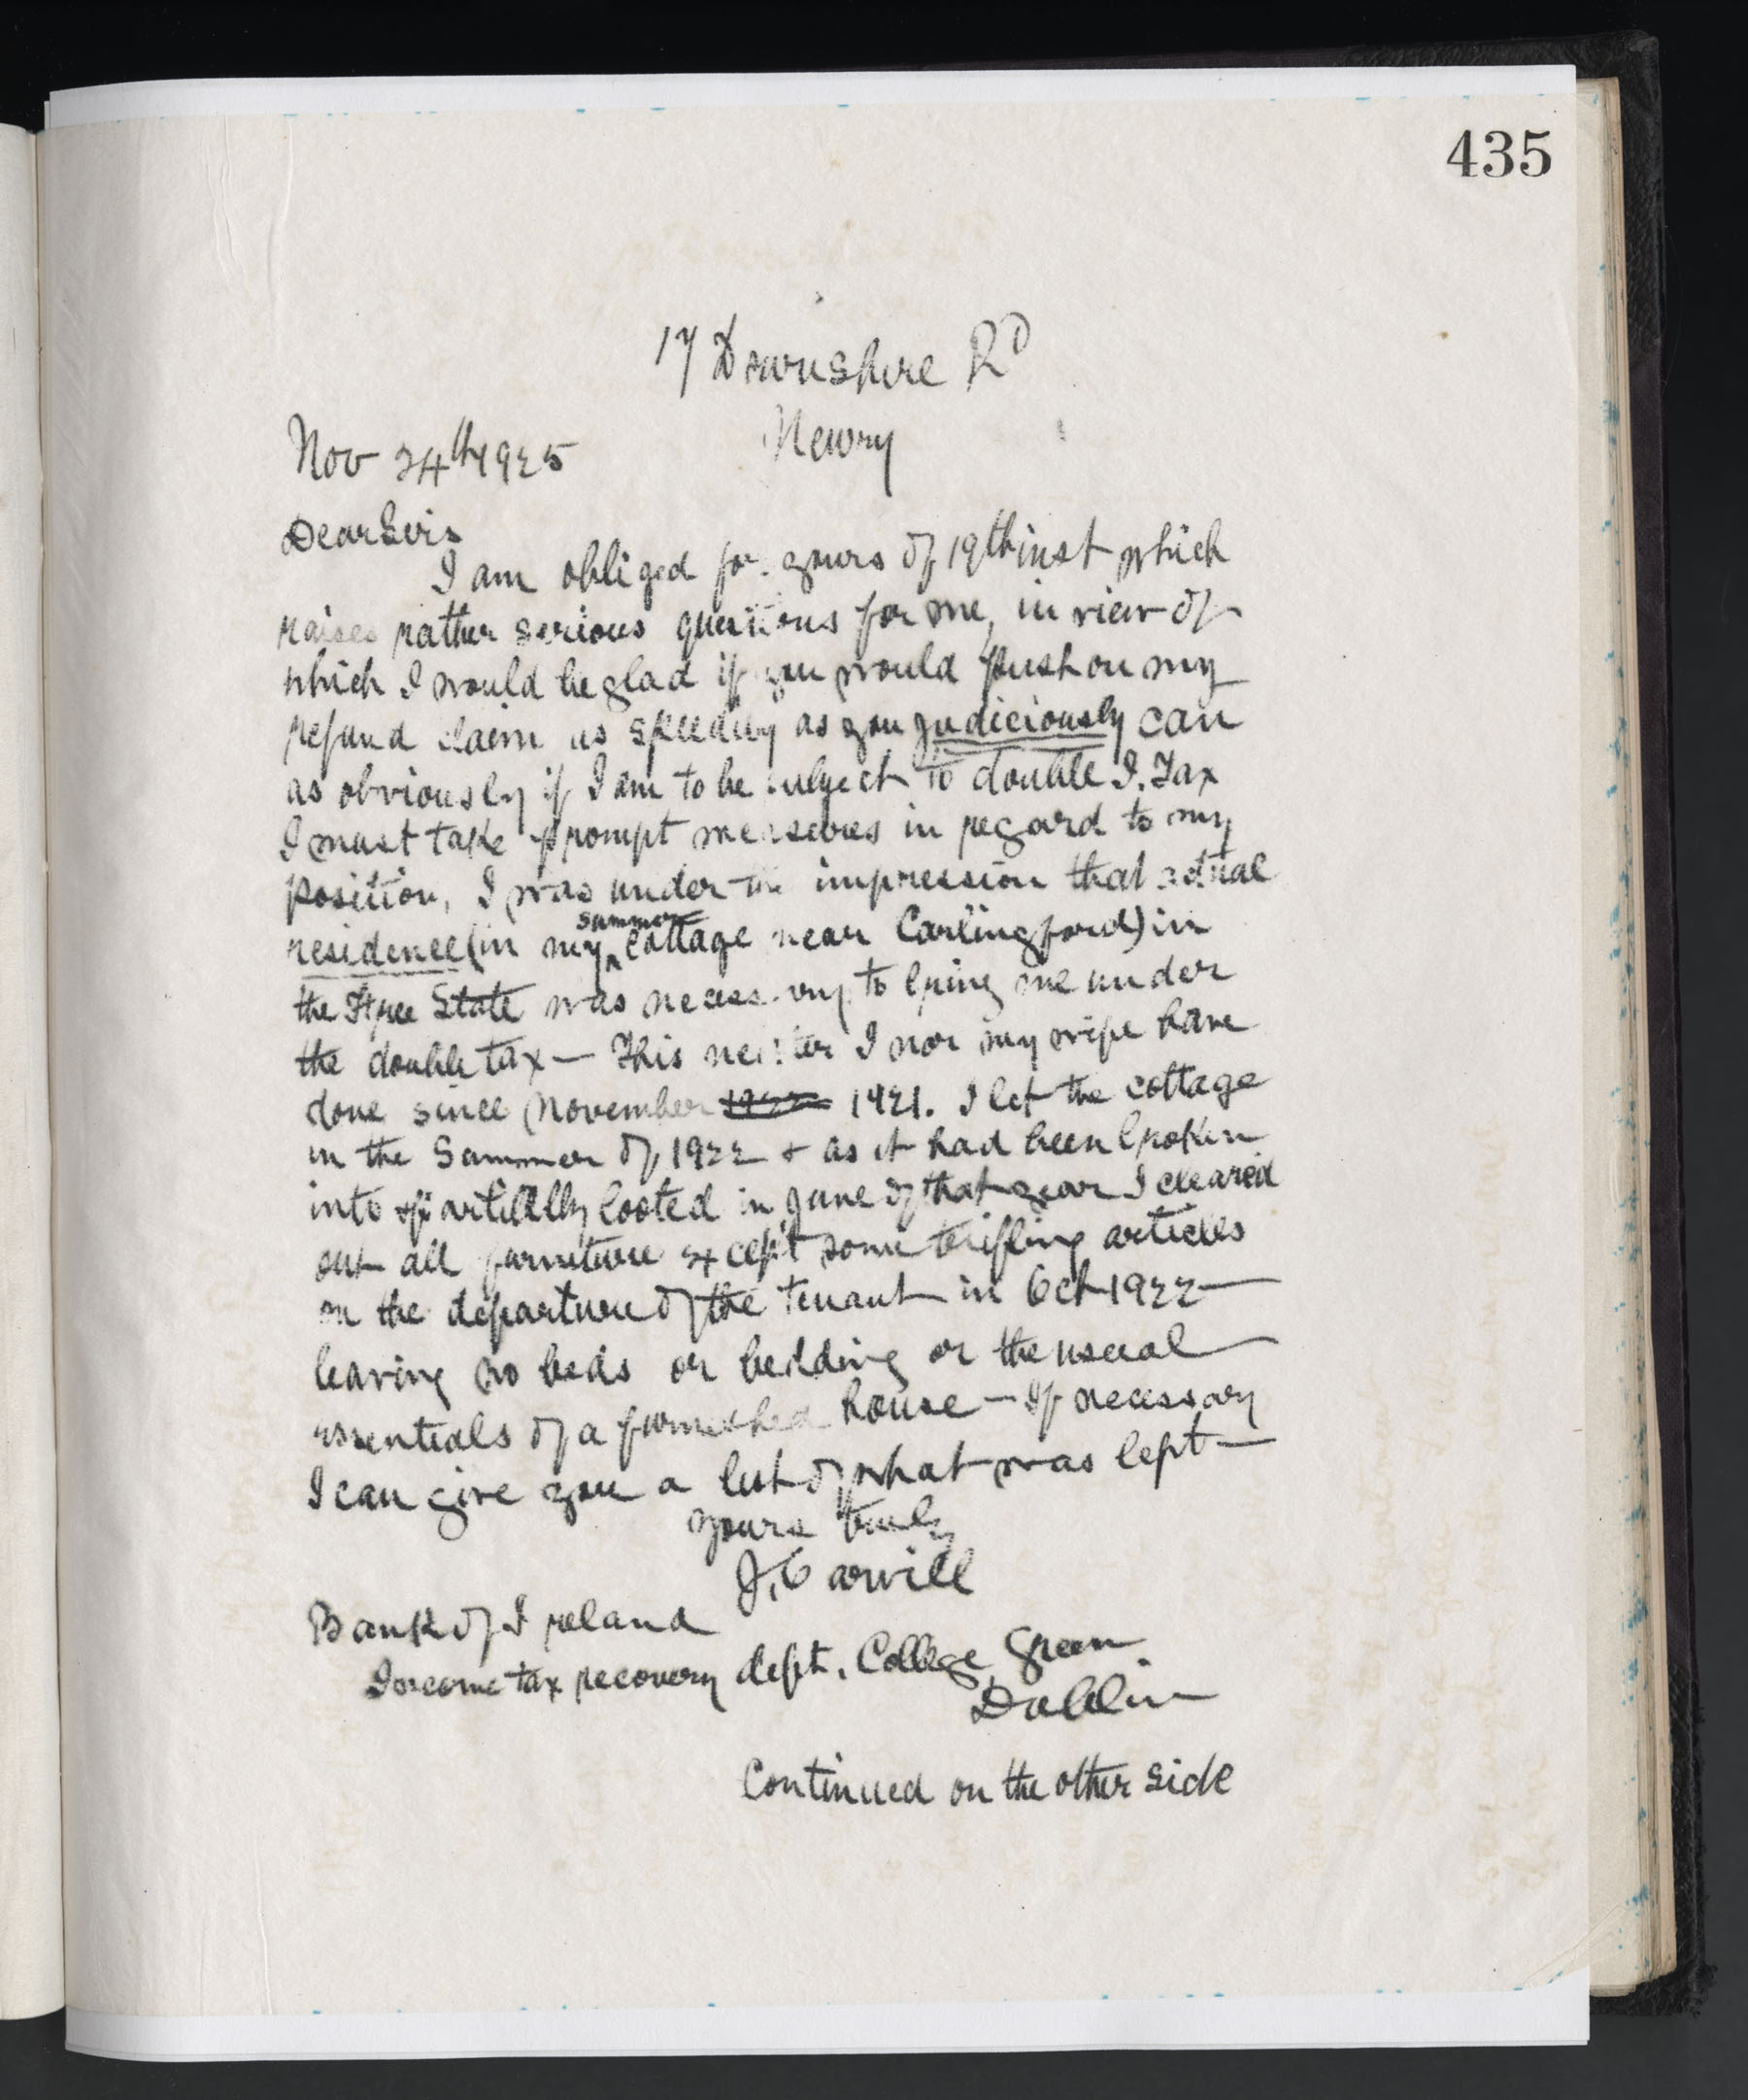 435
17 Downshire Rd
Newry
Nov 24th 1925
Dear Sirs
I am obliged for yours of 19th inst which
raises rather serious questions for me, in view of
which I would be glad if you would push on my
refund claim as speedily as you judiciously can
as obviously if I am to be subject to double I. Tax
I must take prompt measures in regard to my
position, I was under the impression that actual
residence (in my summer cottage near Carlingford) in
the Free State was necessary to bring me under
the double tax — This neither I nor my wife have
done since November 1922 1921. I let the cottage
in the Summer of 1922 & as it had been broken
into & partially looted in June of that year I cleared
out all furniture except some trifling articles
on the departure of the tenant in Oct 1922 —
leaving no beds or bedding or the usual
essentials of a furnished house — If necessary
I can give you a list of what was left —
yours truly
J. Carvill
Bank of Ireland
Income tax recovery dept. College Green
Dublin
Continued on the other side